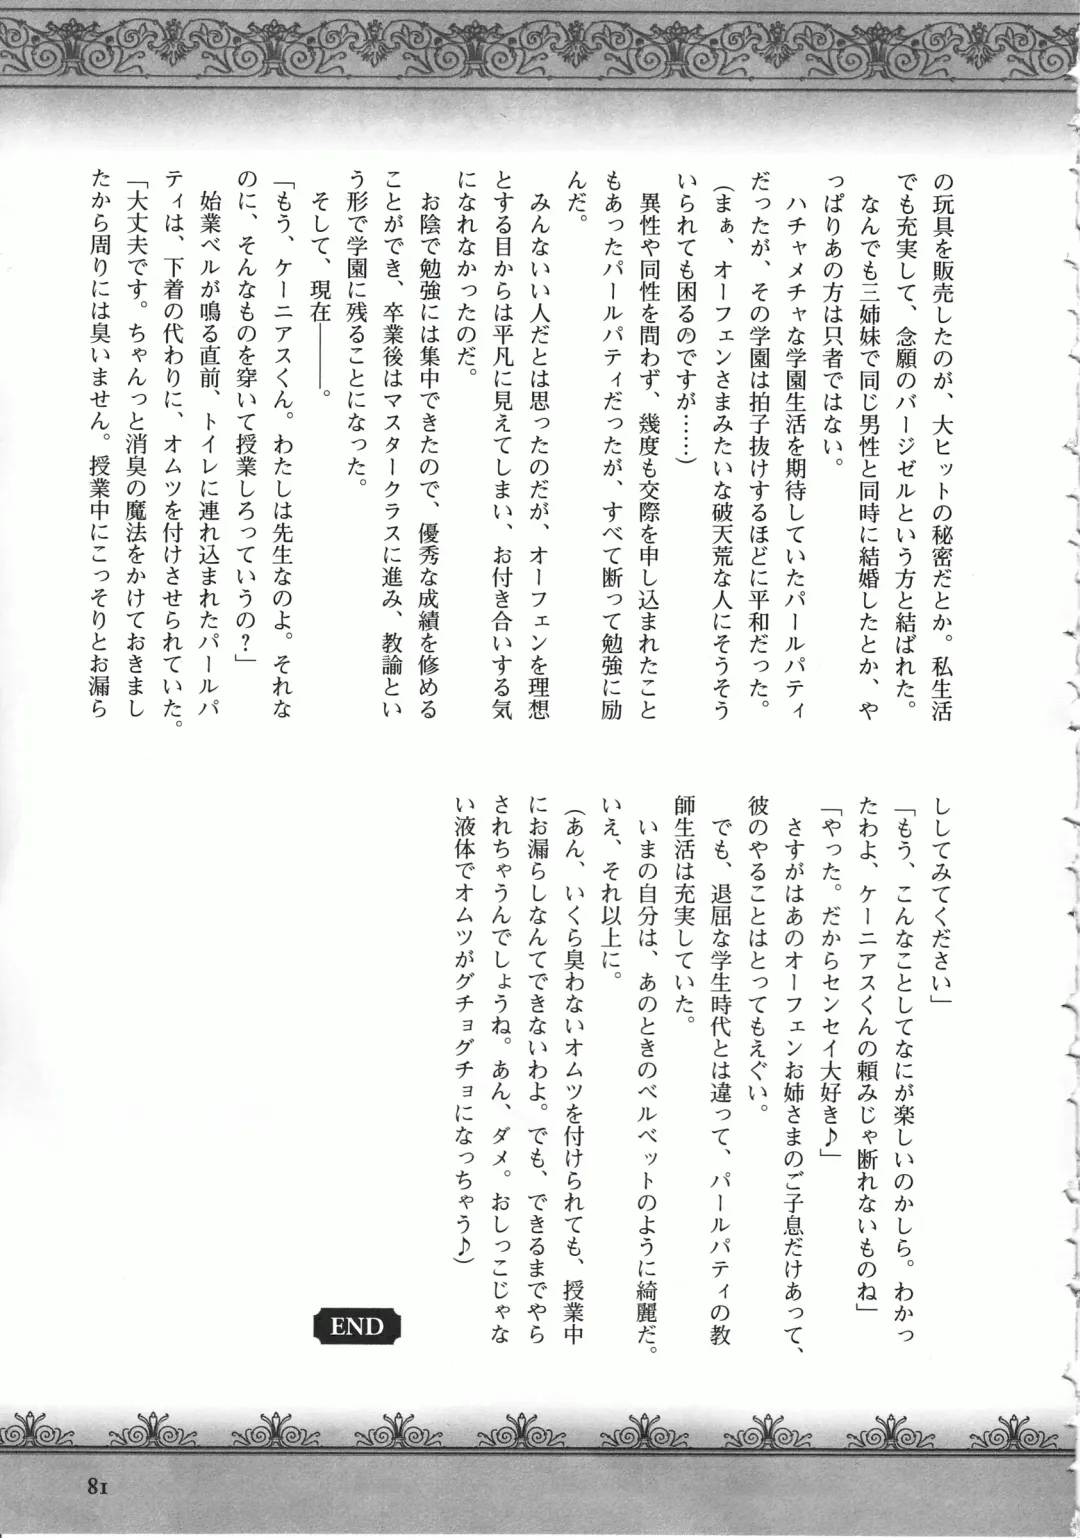 の玩具を販売したのが、大ヒットの秘密だとか。私生活
でも充実して、念願のバージゼルという方と結ばれた。
なんでも三姉妹で同じ男性と同時に結婚したとか、や
っぱりあの方は只者ではない。
ハチャメチャな学園生活を期待していたパールパティ
だったが、その学園は拍子抜けするほどに平和だった。
(まぁ、オーフェンさまみたいな破天荒な人にそうそう
いられても困るのですが……)
異性や同性を問わず、幾度も交際を申し込まれたこと
もあったパールパティだったが、すべて断って勉強に励
んだ。
みんないい人だとは思ったのだが、オーフェンを理想
とする目からは平凡に見えてしまい、お付き合いする気
になれなかったのだ。
お陰で勉強には集中できたので、優秀な成績を修める
ことができ、卒業後はマスタークラスに進み、教諭とい
う形で学園に残ることになった。
そして、現在――。
「もう、ケーニアスくん。わたしは先生なのよ。それな
のに、そんなものを穿いて授業しろっていうの?」
始業ベルが鳴る直前、トイレに連れ込まれたパールパ
ティは、下着の代わりに、オムツを付けさせられていた。
「大丈夫です。ちゃんっと消臭の魔法をかけておきまし
たから周りには臭いません。授業中にこっそりとお漏ら
ししてみてください」
「もう、こんなことしてなにが楽しいのかしら。わかっ
たわよ、ケーニアスくんの頼みじゃ断れないものね」
「やった。だからセンセイ大好き♪」
さすがはあのオーフェンお姉さまのご子息だけあって、
彼のやることはとってもえぐい。
でも、退屈な学生時代とは違って、パールパティの教
師生活は充実していた。
いまの自分は、あのときのベルベットのように綺麗だ。
いえ、それ以上に。
(あん、いくら臭わないオムツを付けられても、授業中
にお漏らしなんてできないわよ。でも、できるまでやら
されちゃうんでしょうね。あん、ダメ。おしっこじゃな
い液体でオムツがグチョグチョになっちゃう♪)
END
81